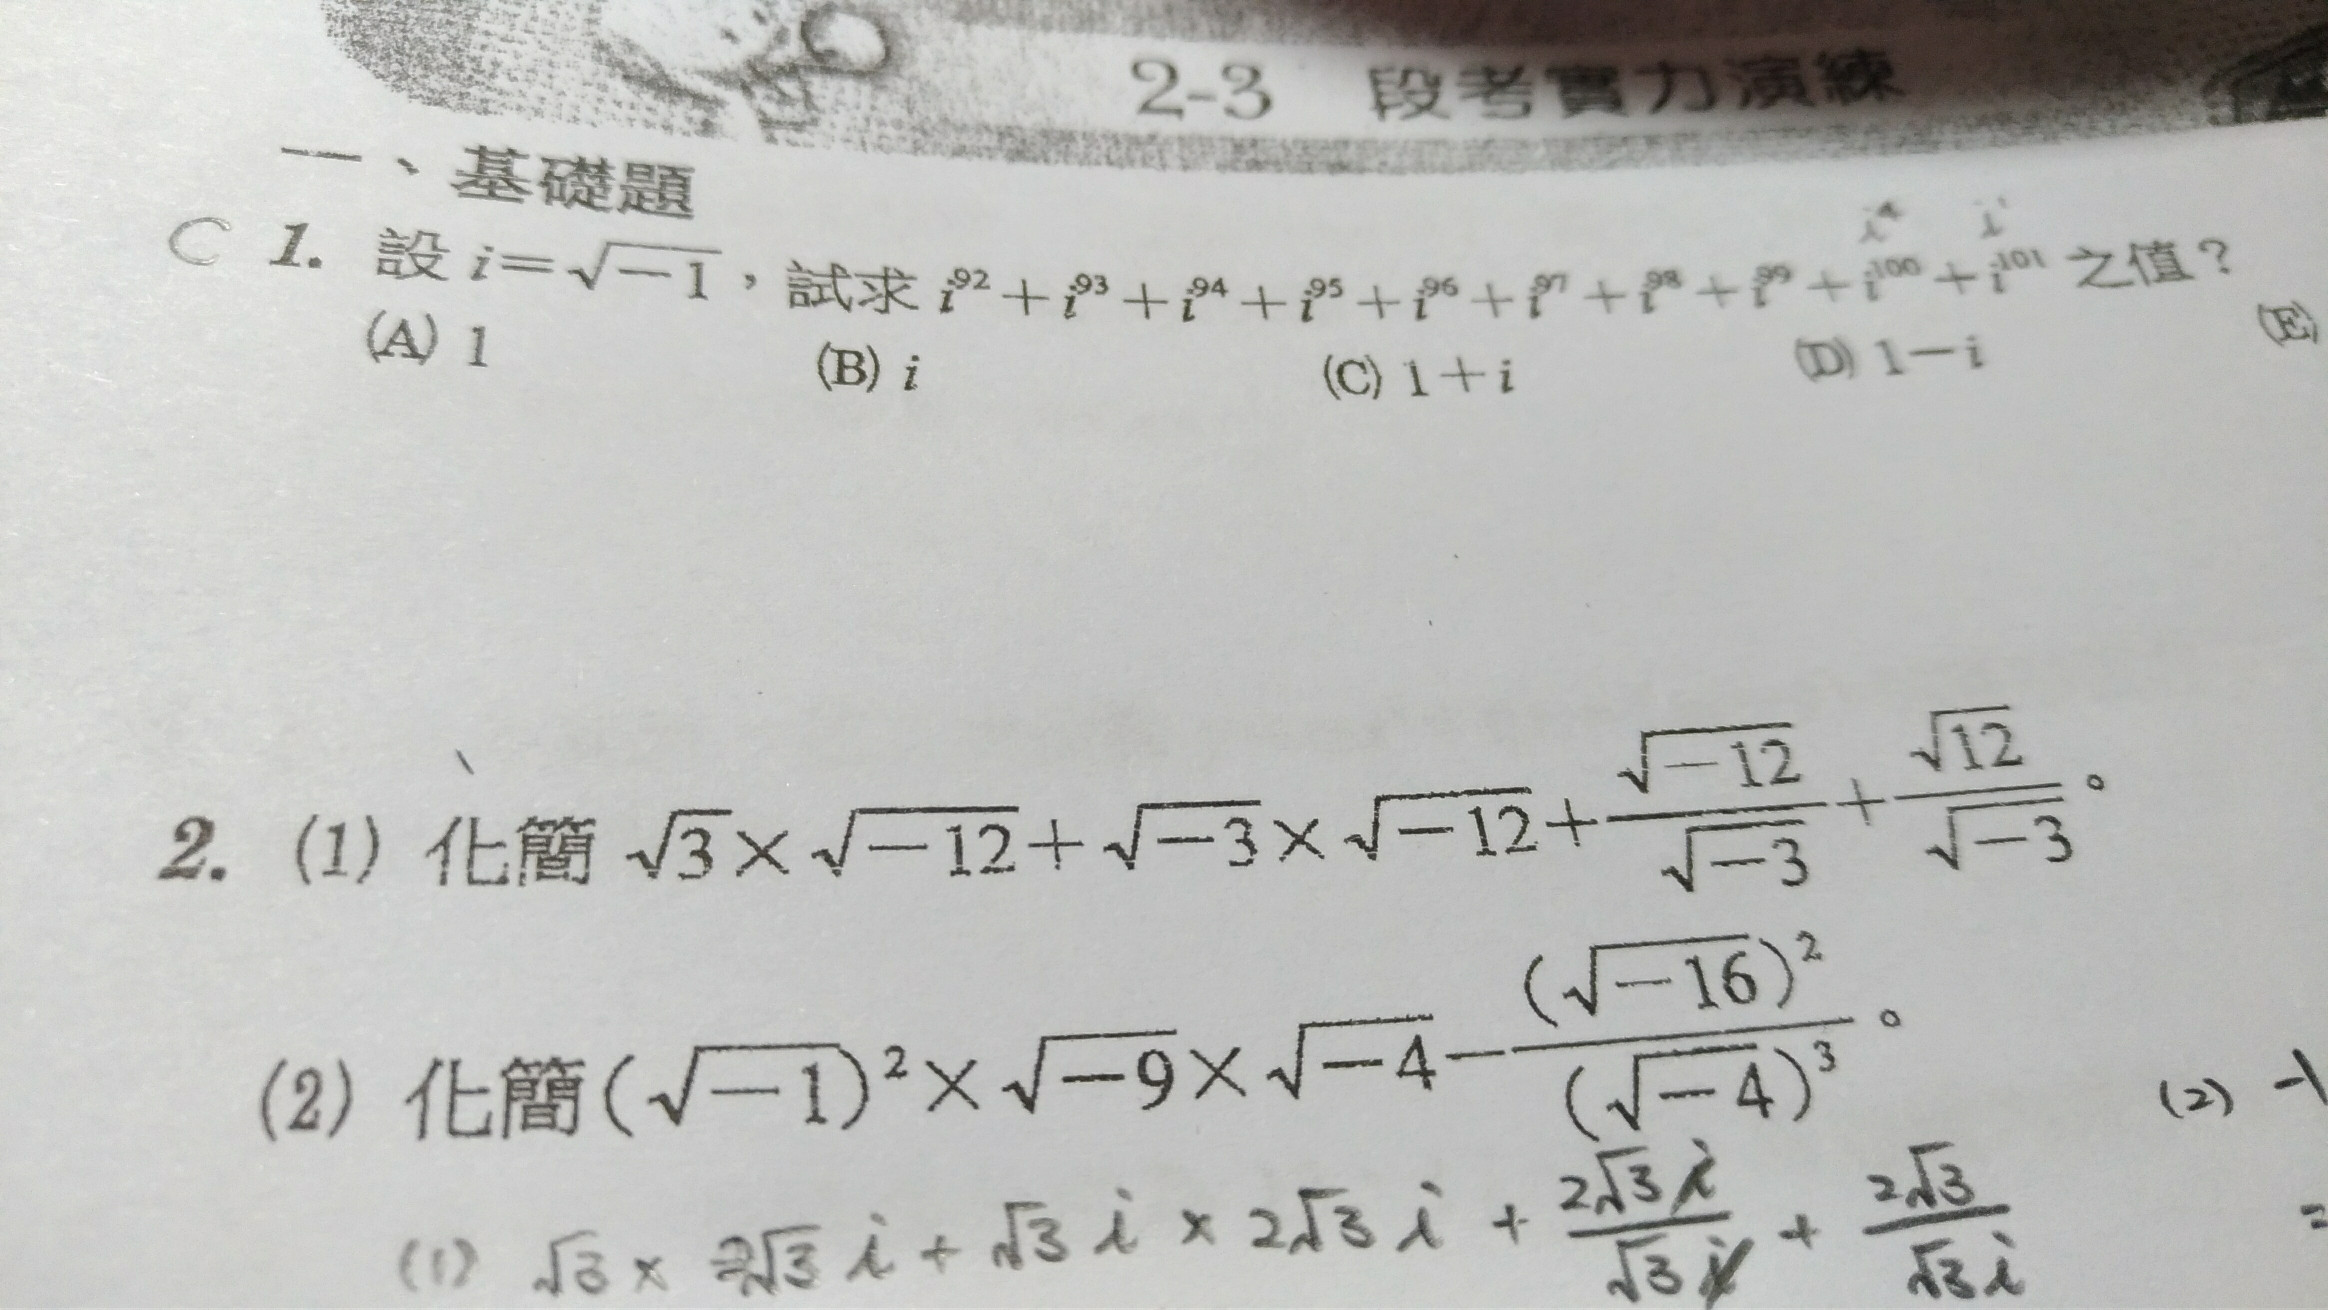 2-3 段考實力演練
一、基礎題
i⁴ i¹
C 1. 設 i=√(-1)，試求 i⁹²+i⁹³+i⁹⁴+i⁹⁵+i⁹⁶+i⁹⁷+i⁹⁸+i⁹⁹+i¹⁰⁰+i¹⁰¹ 之值？
(A) 1 (B) i (C) 1+i (D) 1-i (E)
2. (1) 化簡 √3×√(-12)+√(-3)×√(-12)+√(-12)/√(-3)+√12/√(-3)。
(2) 化簡(√(-1))²×√(-9)×√(-4)-(√(-16))²/(√(-4))³。
(2) -1
(1) √3×2√3 i+√3 i×2√3 i+2√3 i/√3 i+2√3/√3 i
=